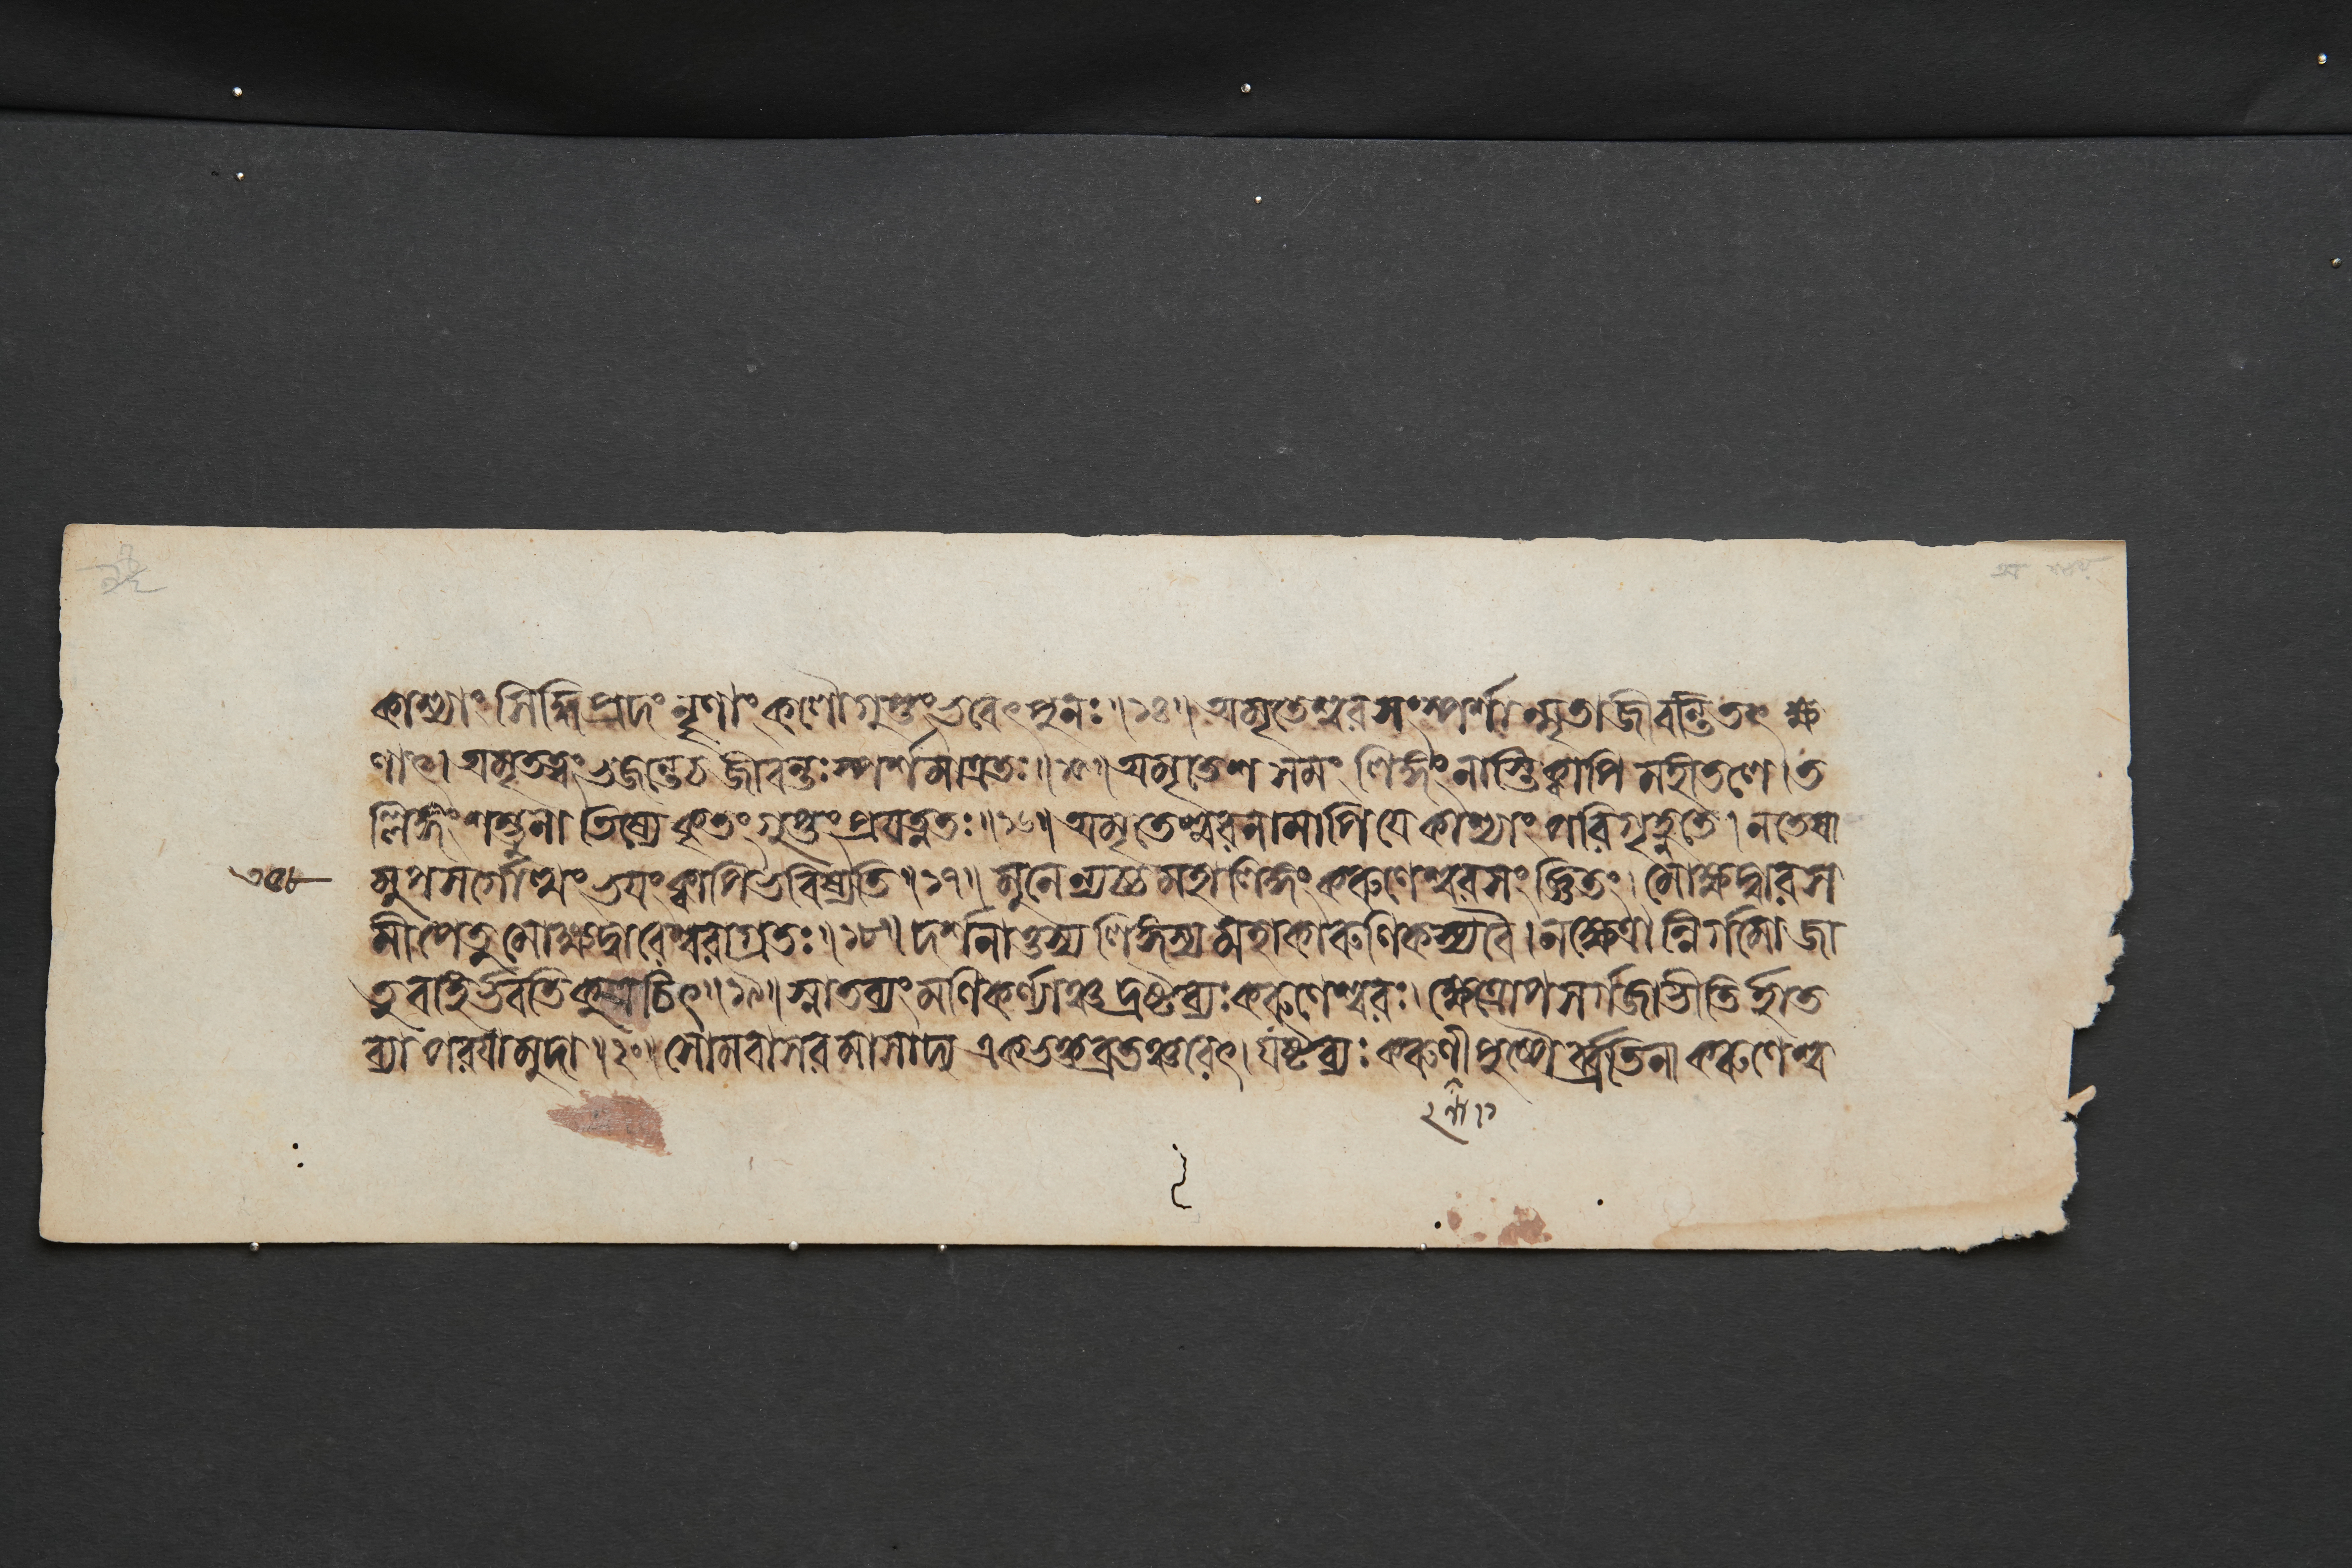 কাশ্যাং সিদ্ধিপ্রদং নৄণাং কলৌ গুপ্তং ভবেৎ পুনঃ ॥১৪॥ অমৃতেশ্বরসংস্পর্শান্মৃতা জীবন্তি তৎক্ষ
ণাৎ। অমৃতত্বং ভজন্তেঽত্র জীবন্তঃ স্পর্শমাত্রতঃ॥১৫॥ অমৃতেশসমং লিঙ্গং নাস্তি ক্বাপি মহীতলে। ত
ল্লিঙ্গং শম্ভুনা তিষ্যে কৃতং গুপ্তং প্রযত্নতঃ॥১৬॥ অমৃতেশ্বরনামাপি যে কাশ্যাং পরিগৃহ্ণতে। ন তেষা
৩৫৮ মুপসর্গোত্থং ভয়ং ক্বাপি ভবিষ্যতি॥১৭॥ মুনেন্যচ্চ মহালিঙ্গং করুণেশ্বরসংজ্ঞিতং। মোক্ষদ্বারস
মীপে তু মোক্ষদ্বারেশ্বরাগ্রতঃ॥১৮॥ দর্শনাত্তস্য লিঙ্গস্য মহাকারুণিকস্য বৈ। ন ক্ষেত্রান্নির্গমো জা
তু বহির্ভবতি কুত্রচিৎ॥১৯॥ স্নাতব্যং মণিকর্ণ্যাঞ্চ দ্রষ্টব্যঃ করুণেশ্বরঃ। ক্ষেত্রোপসর্গজা ভীতির্হাত
ব্যা পরয়া মুদা॥২০॥ সোমবাসরমাসাদ্য একভক্তব্রতঞ্চরেৎ। যষ্টব্যঃ করুণীপুষ্পৈর্ব্রতিনা করুণেশ্ব